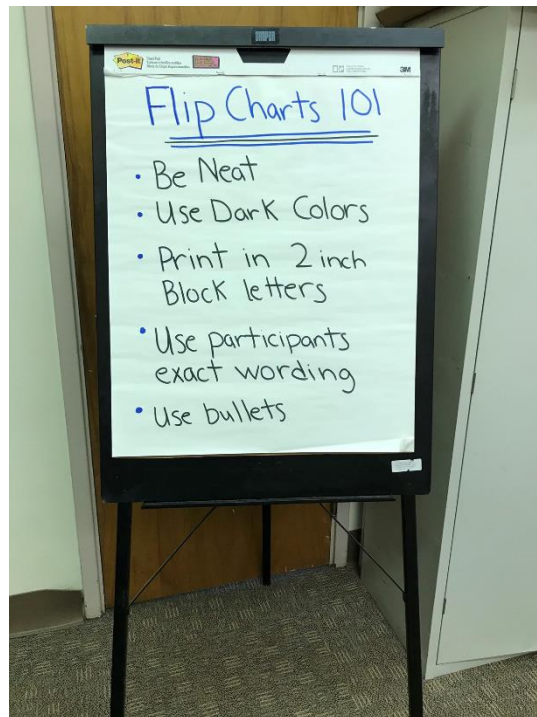 Post-it
3M
Flip Charts 101
• Be Neat
• Use Dark Colors
• Print in 2 inch
Block letters
• Use participants
exact wording
• Use bullets